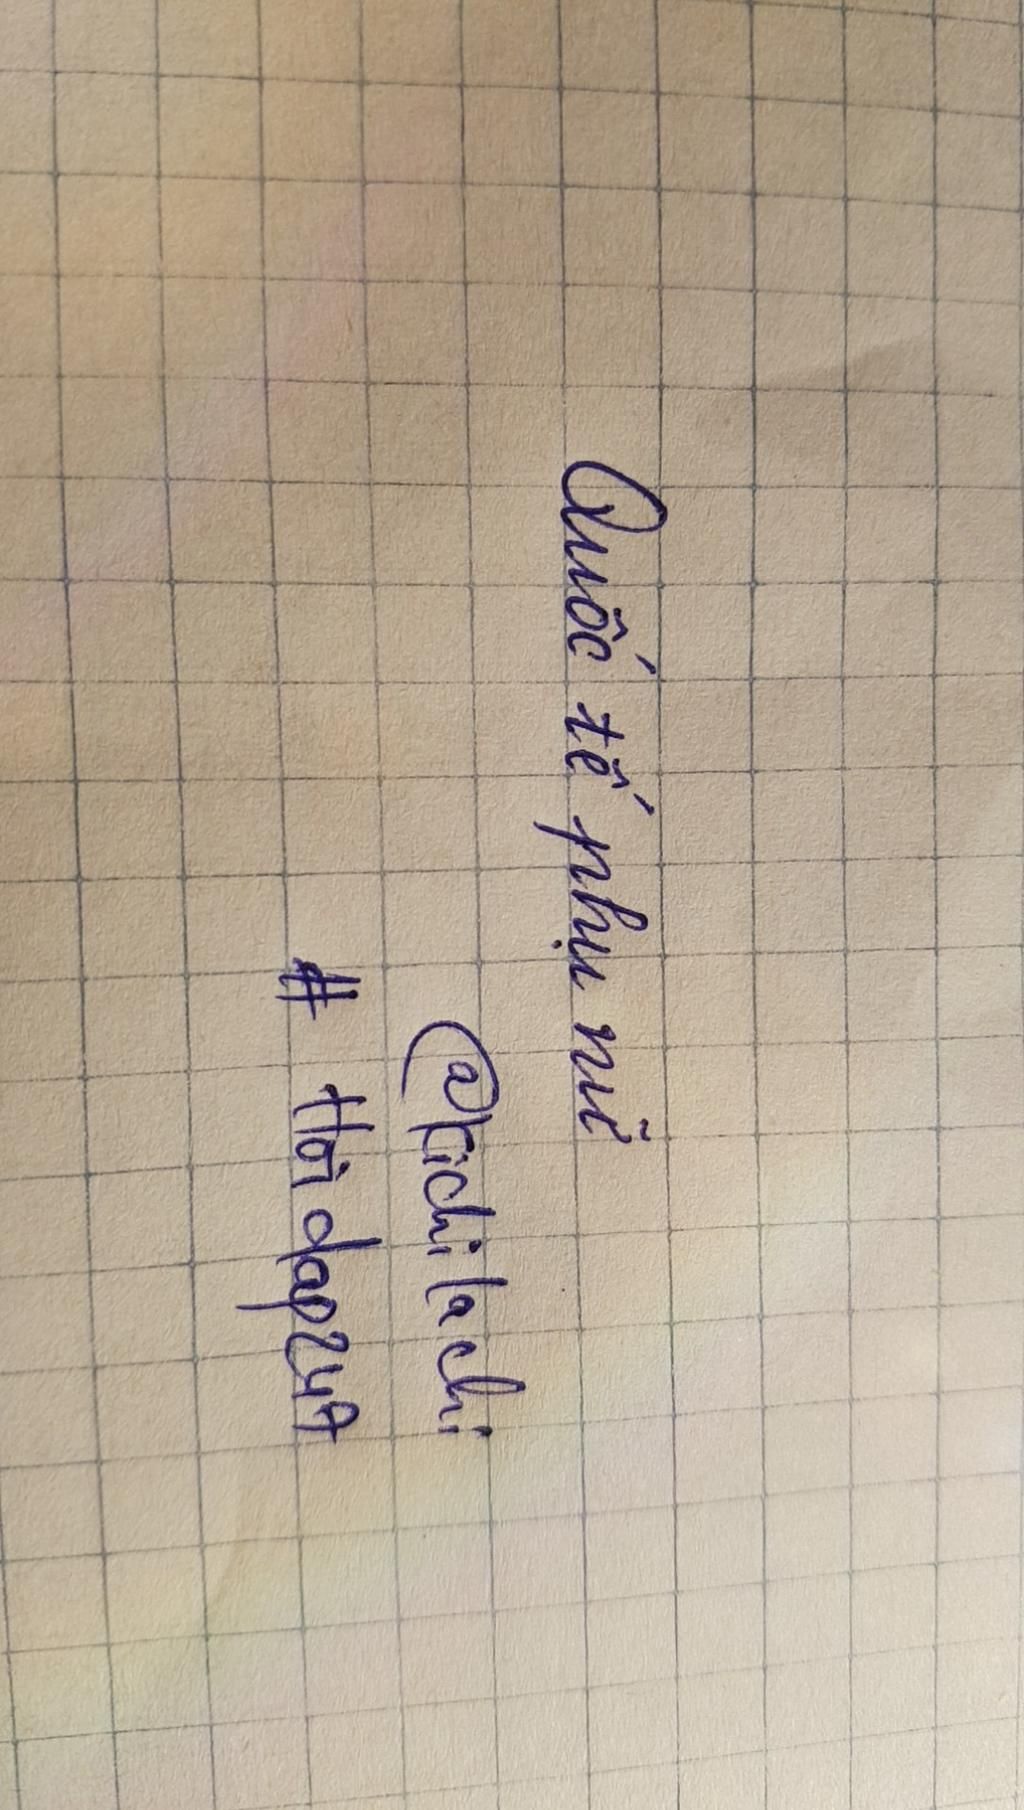 Quốc tế phụ nữ
@kichi la chi
# Hoi dap247